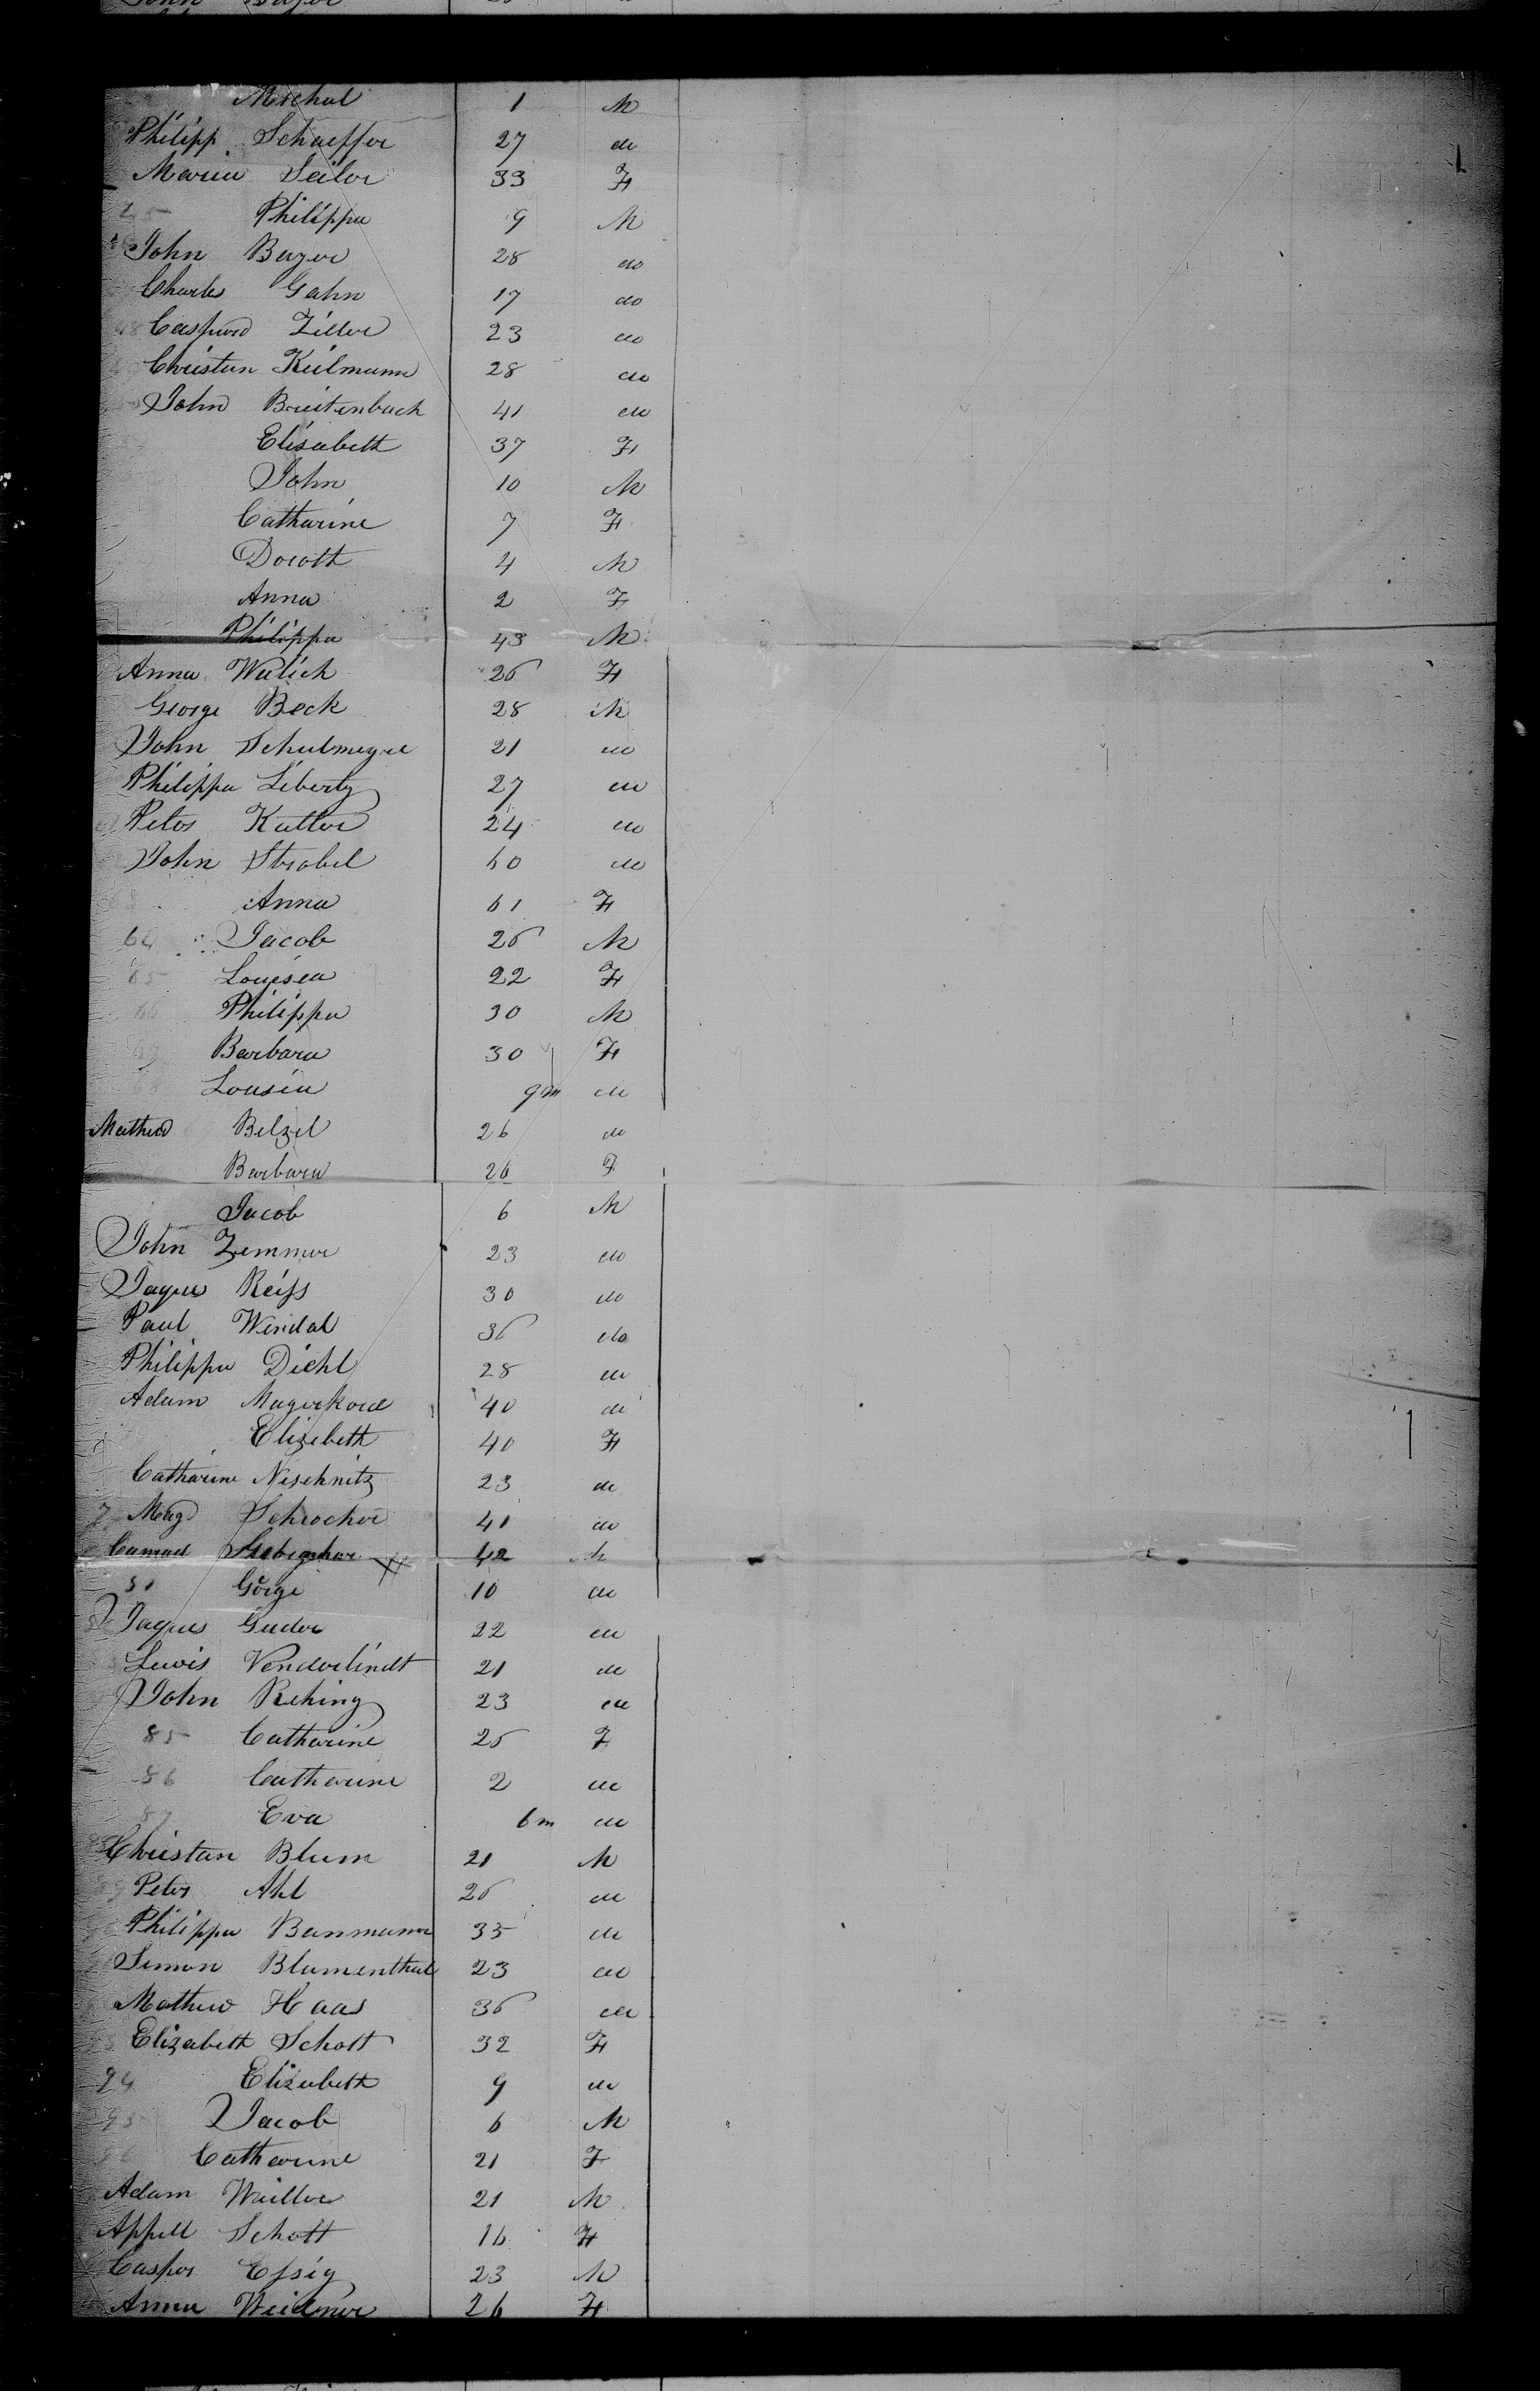 Michal 1 M
Philipp Schaeffer 27 do
Maria Seiler 33 F
25 Philippa 9 M
John Bayer 28 do
Charles Gahn 17 do
Caspard Ziller 23 do
Christan Keilmann 28 do
John Breitenbach 41 do
Elisabeth 37 F
John 10 M
Catharine 7 F
Doroth 4 M
Anna 2 F
Philippa 43 M
Anna Walich 26 F
George Beck 28 M
John 21 do
Philippa Liberty 27 do
Peter Katter 24 do
John Strobel 60 do
63 Anna 61 F
64 Jacob 26 M
65 Louisea 22 F
66 Philippa 30 M
67 Barbara 30 F
68 Lousia 9m do
Mathew Belzel 26 do
Barbara 26 F
Jacob 6 M
John Zemmer 23 do
Jaques Reiss 30 do
Paul Windal 36 do
Philippa Diehl 28 do
Adam 40 do
Elizebeth 40 F
Catharine Nischnitz 23 do
Mag Schrocher 41 do
42 M
81 Görge 10 do
Jaques Guder 22 do
Lewis Venderlindt 21 do
John Rehing 23 do
85 Catharine 25 F
86 Catharine 2 do
87 Eva 6m do
Christan Blum 21 M
Peter Ahl 26 do
Philippa Banmann 35 do
Simon Blumenthal 23 do
Mathew Haas 36 do
Elizabeth Schott 32 F
94 Elizabeth 9 do
95 Jacob 6 M
96 Catharine 21 F
Adam Weiller 21 M
Appell Schott 16 F
Casper Essig 23 M
Anna Weidner 26 F